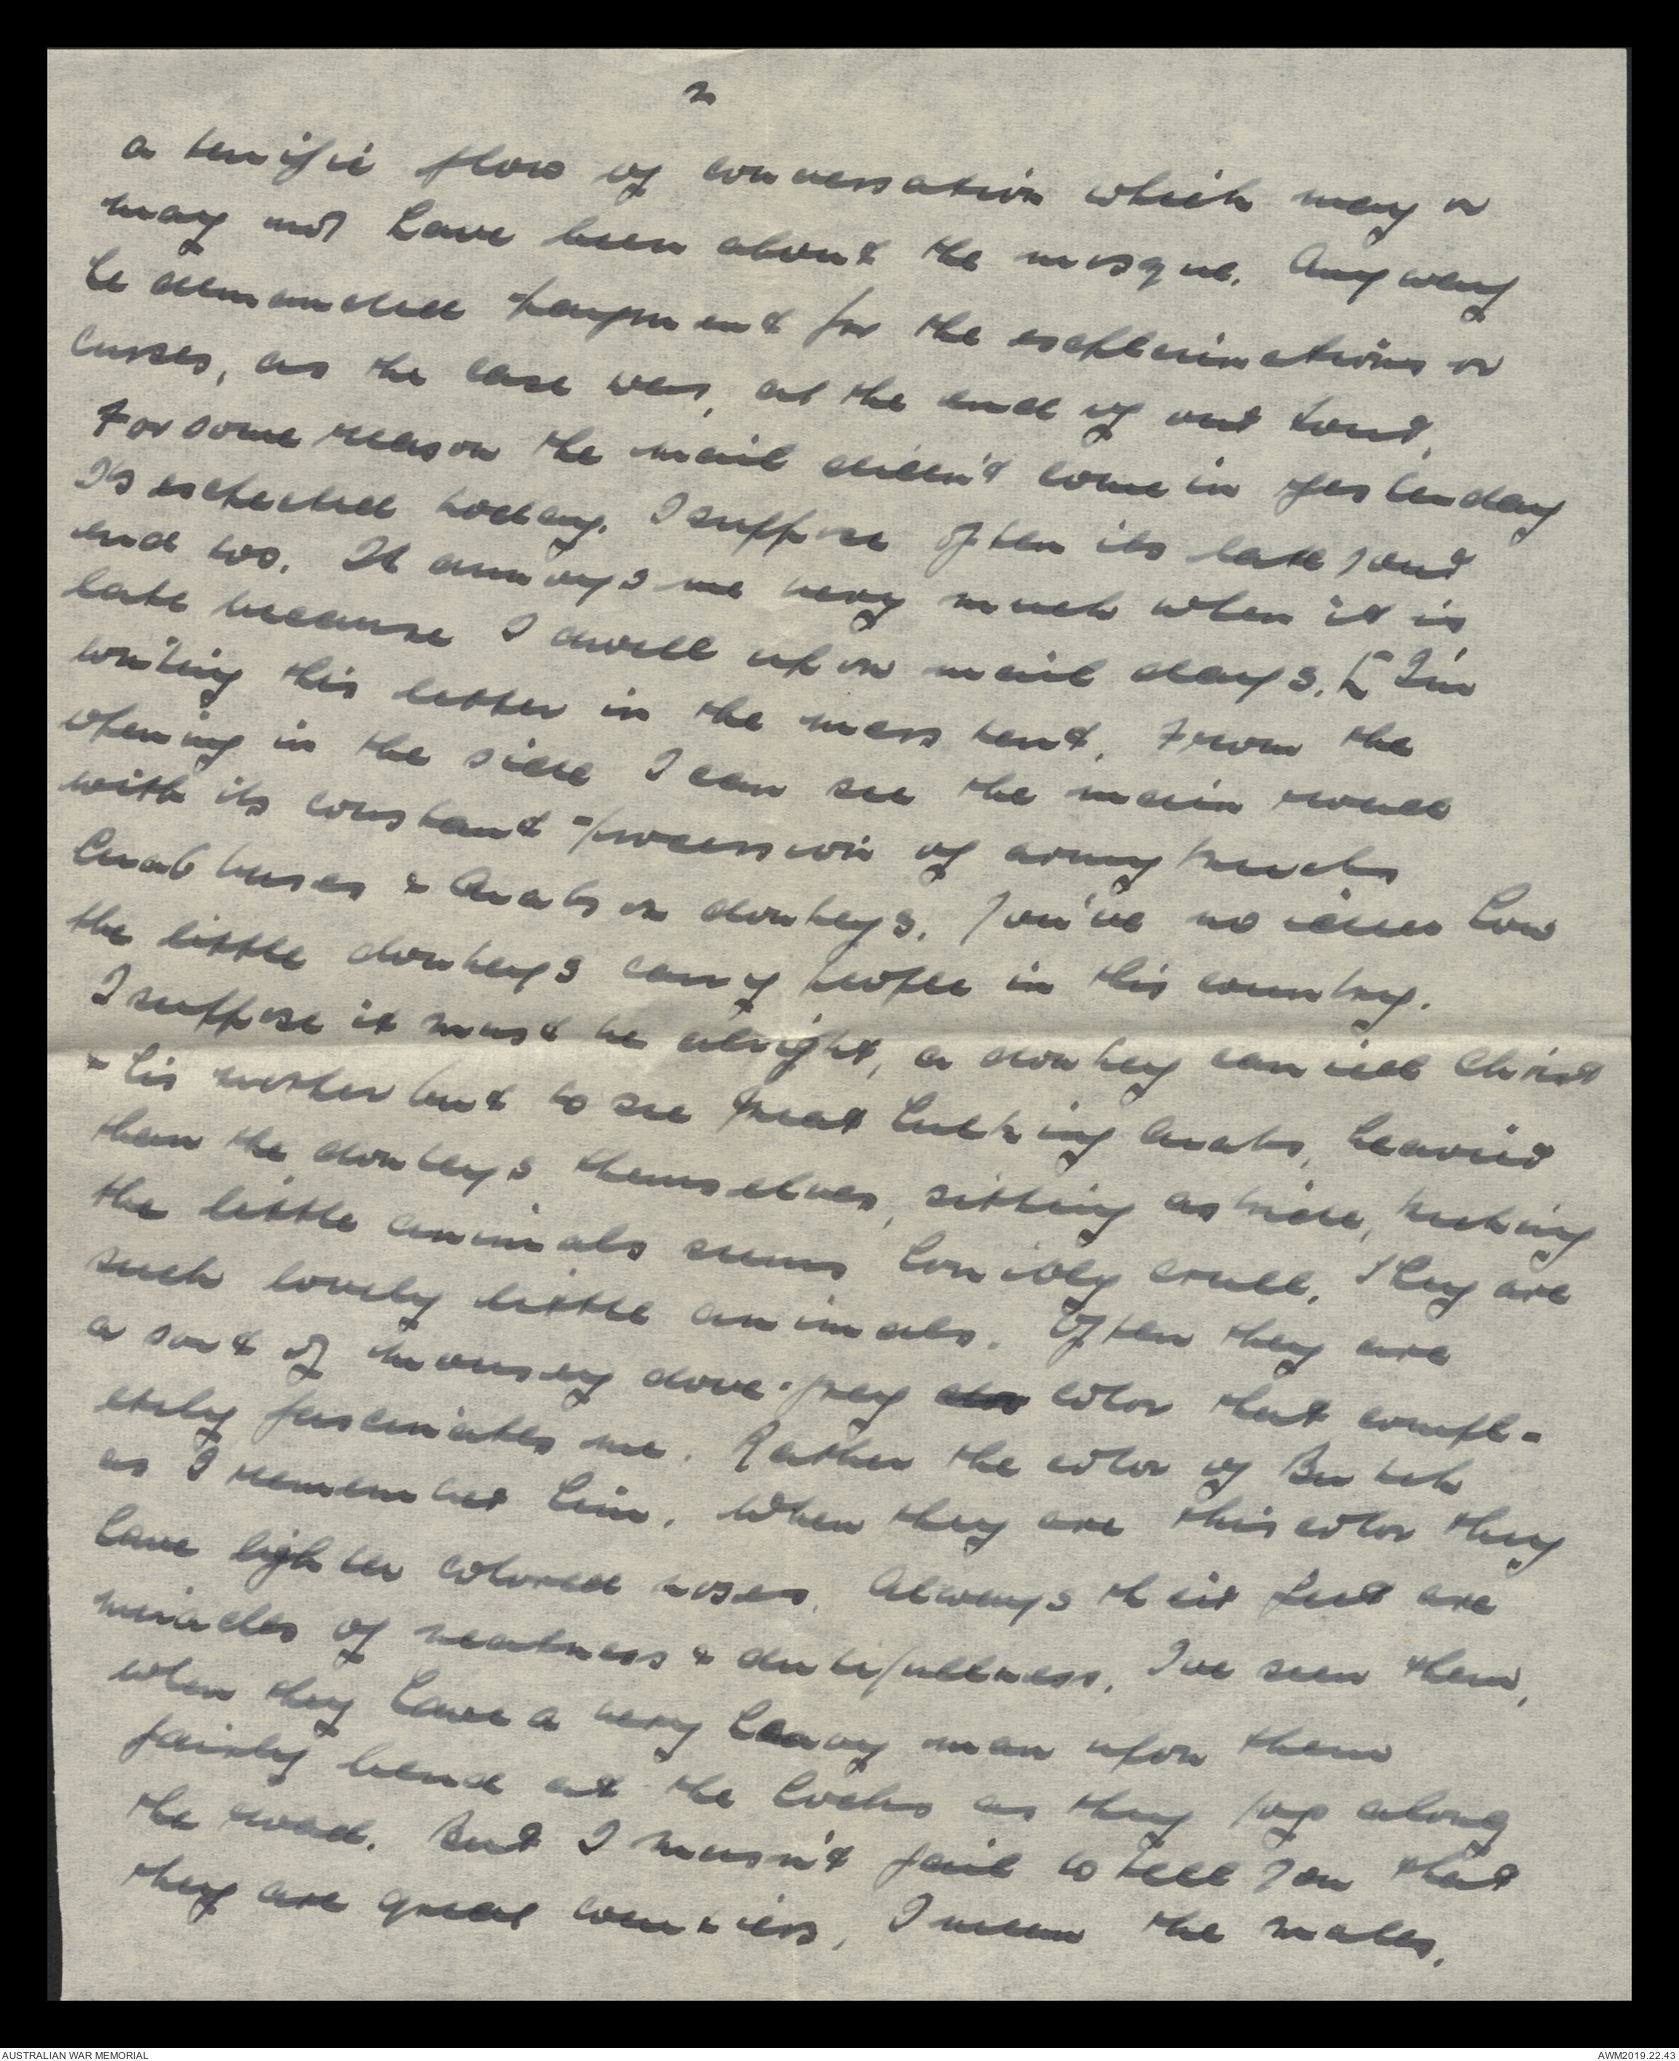 2
a terrific flow of conversation which may or
may not have been about the mosque. Anyway
he demanded payment for the explainations or
curses, as the case was, at the end of our tour.
For some reason the mail didn't come in yesterday
It's expected today. I suppose often its late your
end too. It annoys me very much when it is
late because I dwell upon mail days. [I'm
writing this letter in the mess tent. From the
opening in the side I can see the main road
with its constant procession of army trucks
Arab buses & Arabs on donkeys. You've no idea how
the little donkeys carry people in this country.
I suppose it must be alright, a donkey carried Christ
& his mother but to see great hulking Arabs, heavier
than the donkeys themselves, sitting astride, kicking
the little animals seems horribly cruel. They are
such lovely little animals. Often they are
a sort of mousey dove-grey color that compl-
etely fascinates me. Rather the color of Butch
as I remember him. When they are this color they
have lighter colored noses. Always their feet are
miracles of neatness & dutifullness. I've seen them,
when they have a very heavy man upon them
fairly bend at the hocks as they jog along
the road. But I musn't fail to tell you that
they are great, I mean the males.
AUSTRALIAN WAR MEMORIAL
AWM2019.22.43